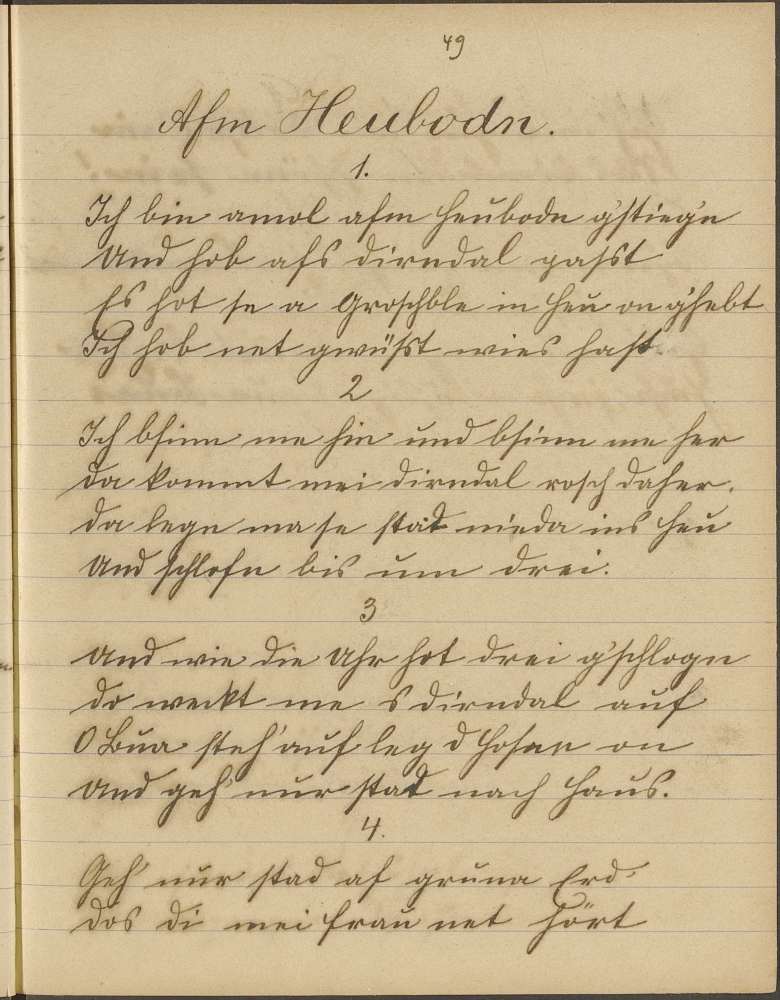 49
Afm Heubodn.
1.
Ich bin amol afm Heubodn g'stieg'n
Und hob afs Dirndal paßt
Es hot se a Groschble in Heu on g'hebt
Ich hob net gwüßt wies haßt
2
Ich bsinn me hin und bsinn me her
Da kommt mei Dirndal rosch daher.
Da legn ma se stad nieda ins Heu
Und schlofn bis um drei.
3
Und wie die Uhr hot drei g'schlogn
Do weckt me s Dirndal auf
O Bua steh' auf leg d Hosen on
Und geh' nur stad nach Haus.
4.
Geh' nur stad af gruna Erd
Dos di mei Frau net hört